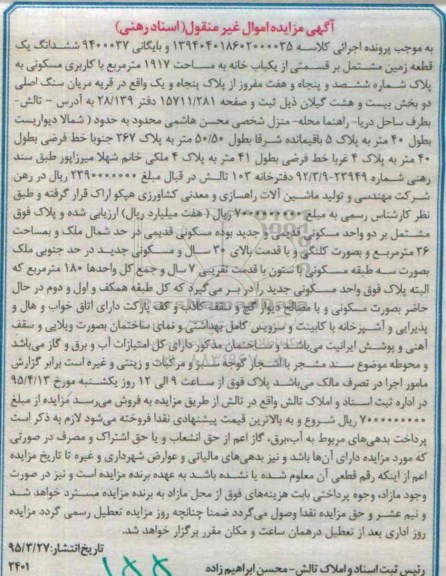 آگهی مزایده اموال غیر منقول(اسناد رهنی)
به موجب پرونده اجرائی کلاسه ۱۳۹۴۰۴۰۱۸۶۰۲۰۰۰۰۳۵ و بایگانی ۹۴۰۰۰۳۷ ششدانگ یک
قطعه زمین مشتمل بر قسمتی از یکباب خانه به مساحت ۱۹۱۷ مترمربع با کاربری مسکونی به
پلاک شماره ششصد و پنجاه و هفت مفروز از پلاک پنجاه و یک واقع در قریه مریان سنگ اصلی
دو بخش بیست و هشت گیلان ذیل ثبت و صفحه ۱۵۷۱۱/۲۸۱ دفتر ۲۸/۱۳۹ به آدرس - تالش-
بطرف ساحل دریا- راهنما محله- منزل شخصی محسن هاشمی محدود به حدود ( شمالا دیواریست
بطول ۴۰ متر به پلاک ۵ باقیمانده شرقا بطول ۵۰/۵۰ متر به پلاک ۲۶۷ جنوبا خط فرضی بطول
۴۰ متر به پلاک ۴ غربا خط فرضی بطول ۴۱ متر به پلاک ۴ ملکی خانم شهلا میرزاپور طبق سند
رهنی شماره ۲۳۹۴۹-۹۲/۳/۹ دفترخانه ۱۰۳ تالش در قبال مبلغ ۲۳۹۰۰۰۰۰۰۰ ریال در رهن
شرکت مهندسی و تولید ماشین آلات راهسازی و معدنی کشاورزی هپکو اراک قرار گرفته و طبق
نظر کارشناس رسمی به مبلغ ۷۰۰۰۰۰۰۰۰۰ ریال ( هفت میلیارد ریال) ارزیابی شده و پلاک فوق
مشتمل بر دو واحد مسکونی قدیمی و جدید بوده مسکونی قدیمی در حد شمال ملک و بمساحت
۳۶ مترمربع و بصورت کلنگی و با قدمت بالای ۳۰ سال و مسکونی جدید در حد جنوبی ملک
بصورت سه طبقه مسکونی با ستون با قدمت تقریبی ۷ سال و جمع کل واحدها ۱۸۰ مترمربع که
البته پلاک فوق واحد مسکونی جدید را در بر می‌گیرد که کل طبقه همکف و اول و دوم در حال
حاضر بصورت مسکونی و با مصالح دیوار گچ و سقف کاذب و کف پارکت دارای اتاق خواب و هال و
پذیرایی و آشپزخانه با کابینت و سرویس کامل بهداشتی و نمای ساختمان بصورت ویلایی و سقف
آهنی و پوشش ایرانیت می‌باشد و ساختمان مذکور دارای کل امتیازات آب و برق و گاز می‌باشد
و محوطه موضوع سند مشجر با اشجار گوجه سبز و مرکبات و زینتی و غیره است برابر گزارش
مامور اجرا در تصرف مالک می‌باشد پلاک فوق از ساعت ۹ الی ۱۲ روز یکشنبه مورخ ۹۵/۴/۱۳
در اداره ثبت اسناد و املاک تالش واقع در تالش از طریق مزایده به فروش می‌رسد مزایده از مبلغ
۷۰۰۰۰۰۰۰۰۰ ریال شروع و به بالاترین قیمت پیشنهادی نقدا فروخته می‌شود لازم به ذکر است
پرداخت بدهی‌های مربوط به آب،برق، گاز اعم از حق انشعاب و یا حق اشتراک و مصرف در صورتی
که مورد مزایده دارای آن‌ها باشد و نیز بدهی‌های مالیاتی و عوارض شهرداری و غیره تا تاریخ مزایده
اعم از اینکه رقم قطعی آن معلوم شده یا نشده باشد به عهده برنده مزایده است و نیز در صورت
وجود مازاد، وجوه پرداختی بابت هزینه‌های فوق از محل مازاد به برنده مزایده مسترد خواهد شد
و نیم عشر و حق مزایده نقدا وصول می‌گردد ضمنا چنانچه روز مزایده تعطیل رسمی گردد مزایده
روز اداری بعد از تعطیل درهمان ساعت و مکان مقرر برگزار خواهد شد.
تاریخ انتشار: ۹۵/۳/۲۷
رئیس ثبت اسناد و املاک تالش- محسن ابراهیم زاده
۲۴۰۱